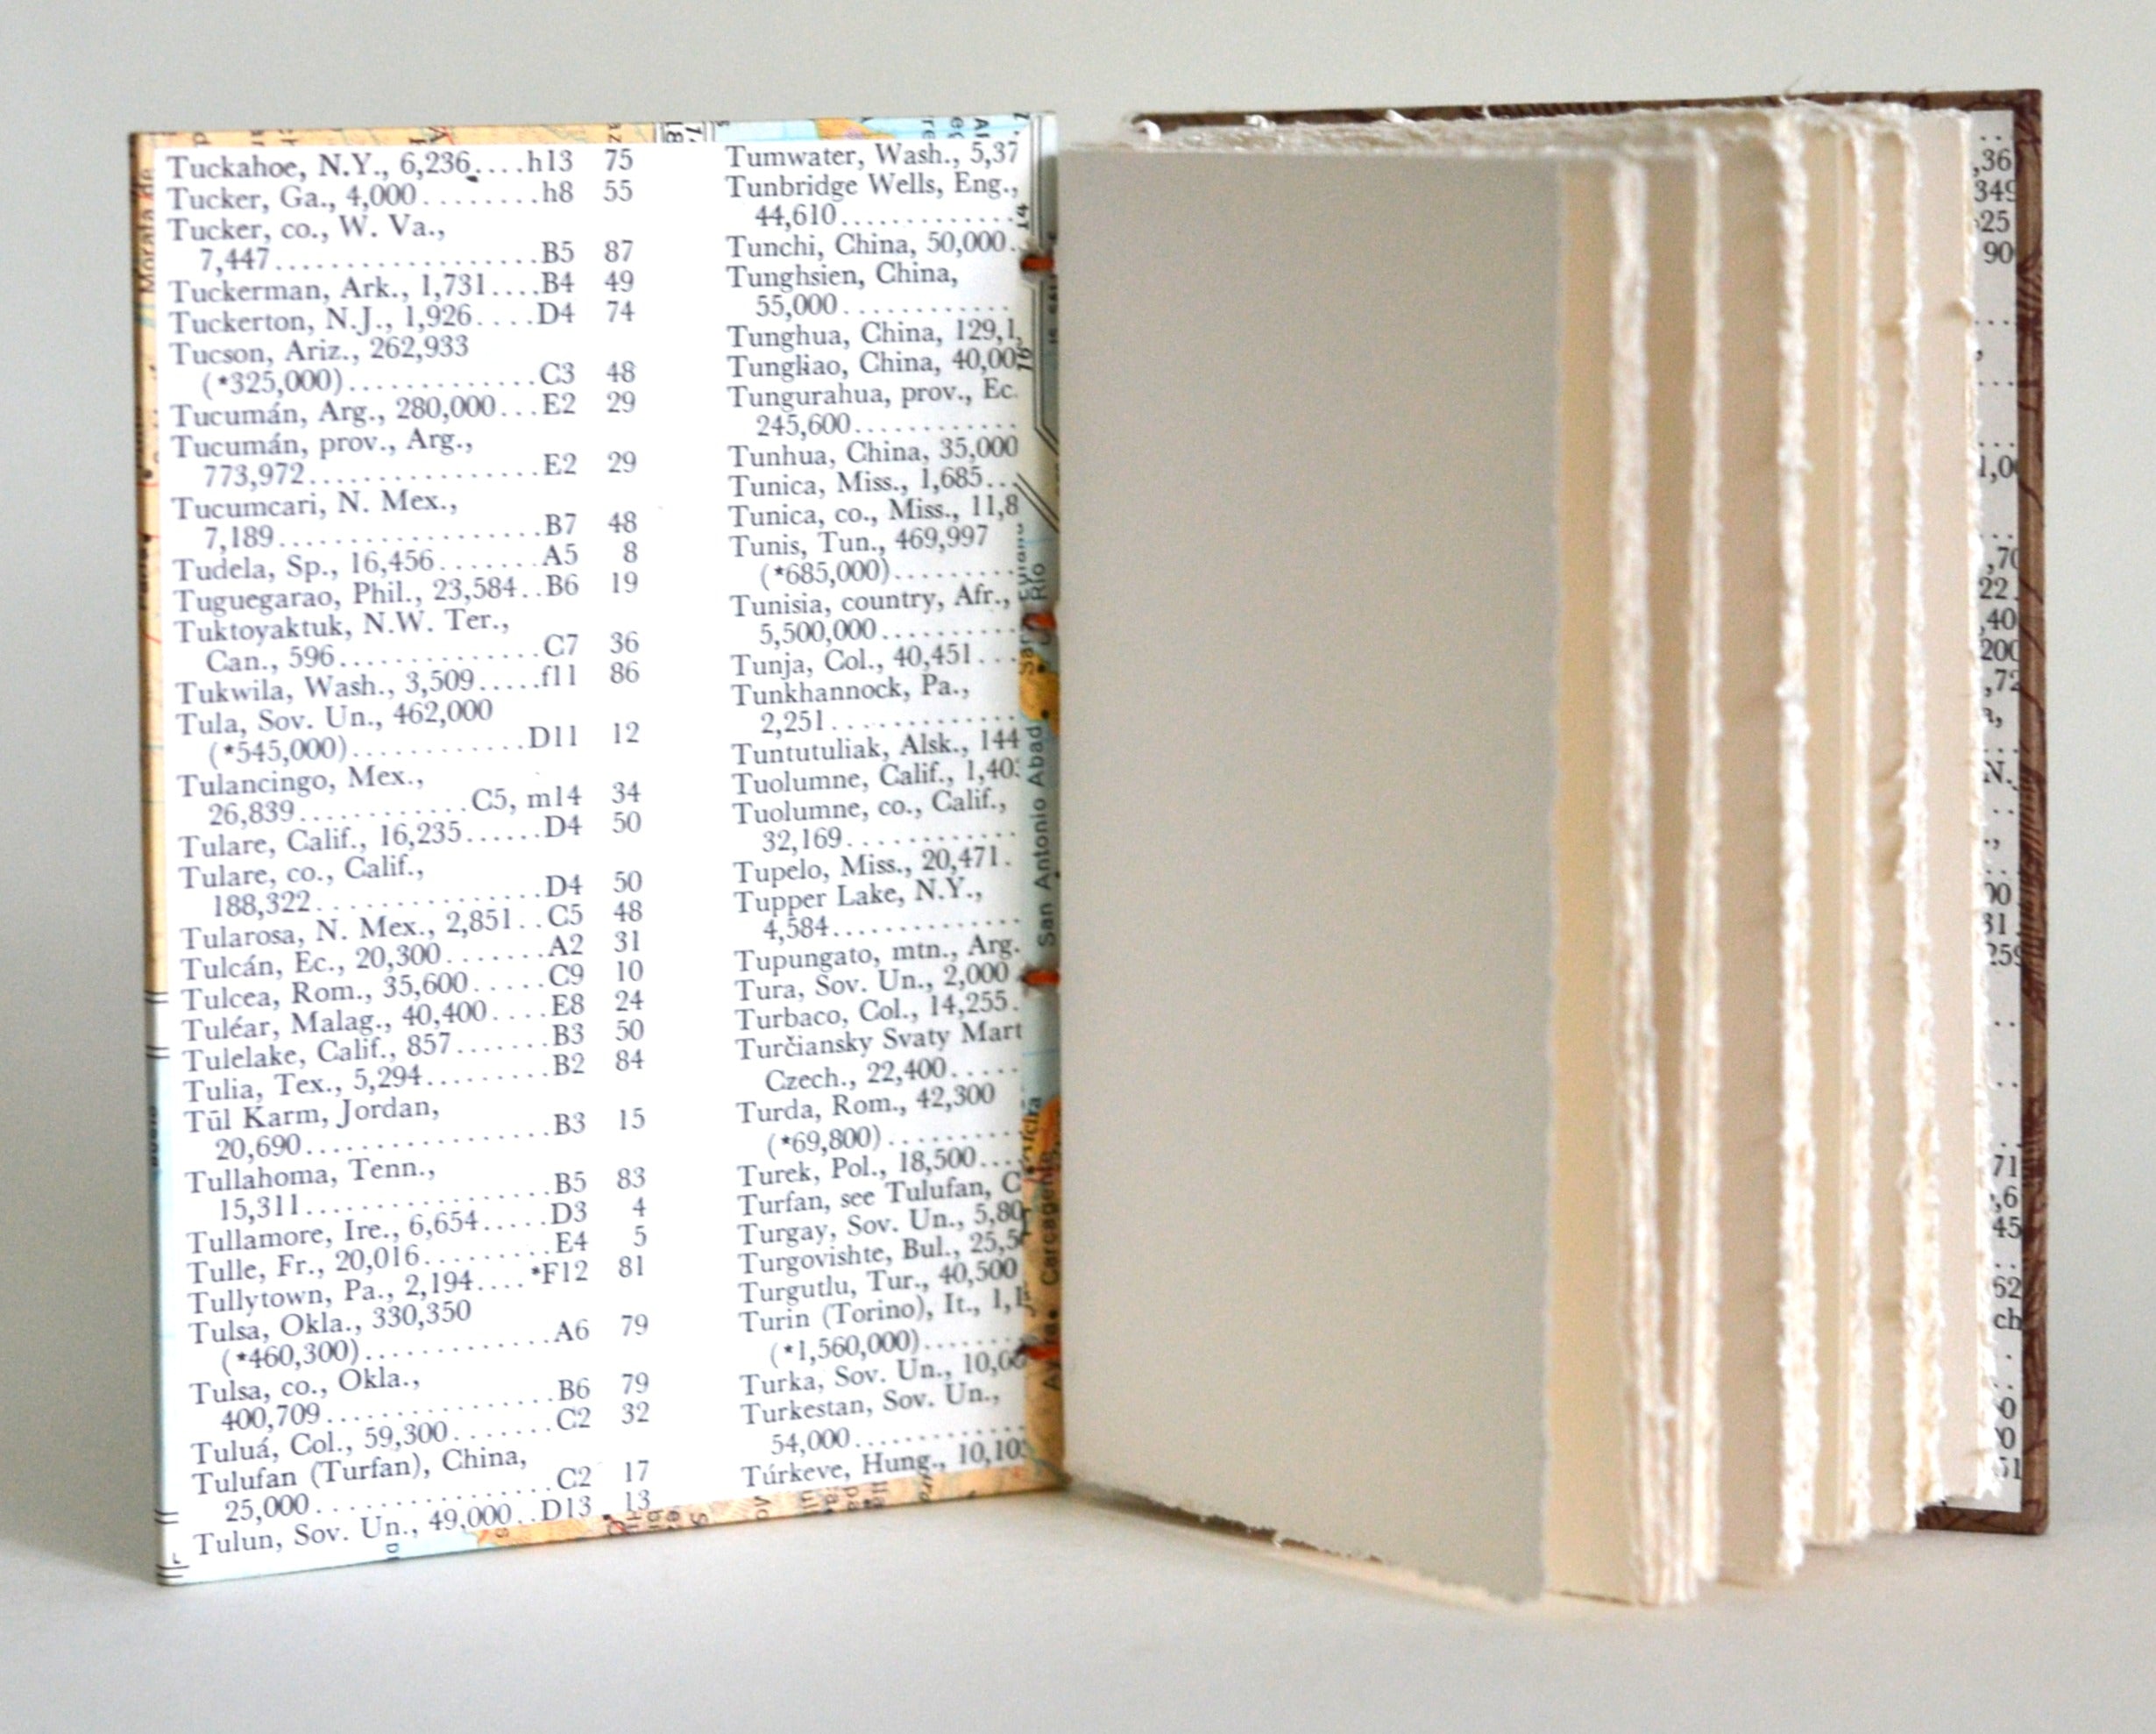 Tuckahoe, N.Y., 6,236....h13 75
Tucker, Ga., 4,000........h8 55
Tucker, co., W. Va.,
7,447...................B5 87
Tuckerman, Ark., 1,731....B4 49
Tuckerton, N.J., 1,926....D4 74
Tucson, Ariz., 262,933
(*325,000).............C3 48
Tucumán, Arg., 280,000...E2 29
Tucumán, prov., Arg.,
773,972................E2 29
Tucumcari, N. Mex.,
7,189..................B7 48
Tudela, Sp., 16,456........A5 8
Tuguegarao, Phil., 23,584..B6 19
Tuktoyaktuk, N.W. Ter.,
Can., 596..............C7 36
Tukwila, Wash., 3,509.....f11 86
Tula, Sov. Un., 462,000
(*545,000)............D11 12
Tulancingo, Mex.,
26,839...........C5, m14 34
Tulare, Calif., 16,235......D4 50
Tulare, co., Calif.,
188,322................D4 50
Tularosa, N. Mex., 2,851..C5 48
Tulcán, Ec., 20,300........A2 31
Tulcea, Rom., 35,600......C9 10
Tuléar, Malag., 40,400....E8 24
Tulelake, Calif., 857.......B3 50
Tulia, Tex., 5,294.........B2 84
Tūl Karm, Jordan,
20,690.................B3 15
Tullahoma, Tenn.,
15,311.................B5 83
Tullamore, Ire., 6,654.....D3 4
Tulle, Fr., 20,016.........E4 5
Tullytown, Pa., 2,194....*F12 81
Tulsa, Okla., 330,350
(*460,300).............A6 79
Tulsa, co., Okla.,
400,709................B6 79
Tuluá, Col., 59,300.......C2 32
Tulufan (Turfan), China,
25,000.................C2 17
Tulun, Sov. Un., 49,000..D13 13
Tumwater, Wash., 5,37
Tunbridge Wells, Eng.,
44,610.............
Tunchi, China, 50,000.
Tunghsien, China,
55,000............
Tunghua, China, 129,1
Tungliao, China, 40,00
Tungurahua, prov., Ec.
245,600............
Tunhua, China, 35,000
Tunica, Miss., 1,685...
Tunica, co., Miss., 11,8
Tunis, Tun., 469,997
(*685,000).........
Tunisia, country, Afr.,
5,500,000..........
Tunja, Col., 40,451...
Tunkhannock, Pa.,
2,251.............
Tuntutuliak, Alsk., 144
Tuolumne, Calif., 1,403
Tuolumne, co., Calif.,
32,169............
Tupelo, Miss., 20,471.
Tupper Lake, N.Y.,
4,584.............
Tupungato, mtn., Arg.
Tura, Sov. Un., 2,000
Turbaco, Col., 14,255.
Turčiansky Svaty Mart
Czech., 22,400.....
Turda, Rom., 42,300
(*69,800)..........
Turek, Pol., 18,500....
Turfan, see Tulufan, C
Turgay, Sov. Un., 5,80
Turgovishte, Bul., 25,5
Turgutlu, Tur., 40,500
Turin (Torino), It., 1,1
(*1,560,000).......
Turka, Sov. Un., 10,00
Turkestan, Sov. Un.,
54,000............
Túrkeve, Hung., 10,10
San Antonio Abad
Carcagente
Río
,36
349
25
90
1,0
,70
22.
,40
200
,72
N.
00
31.
259
71
,6
45
62
ch
0
0
51